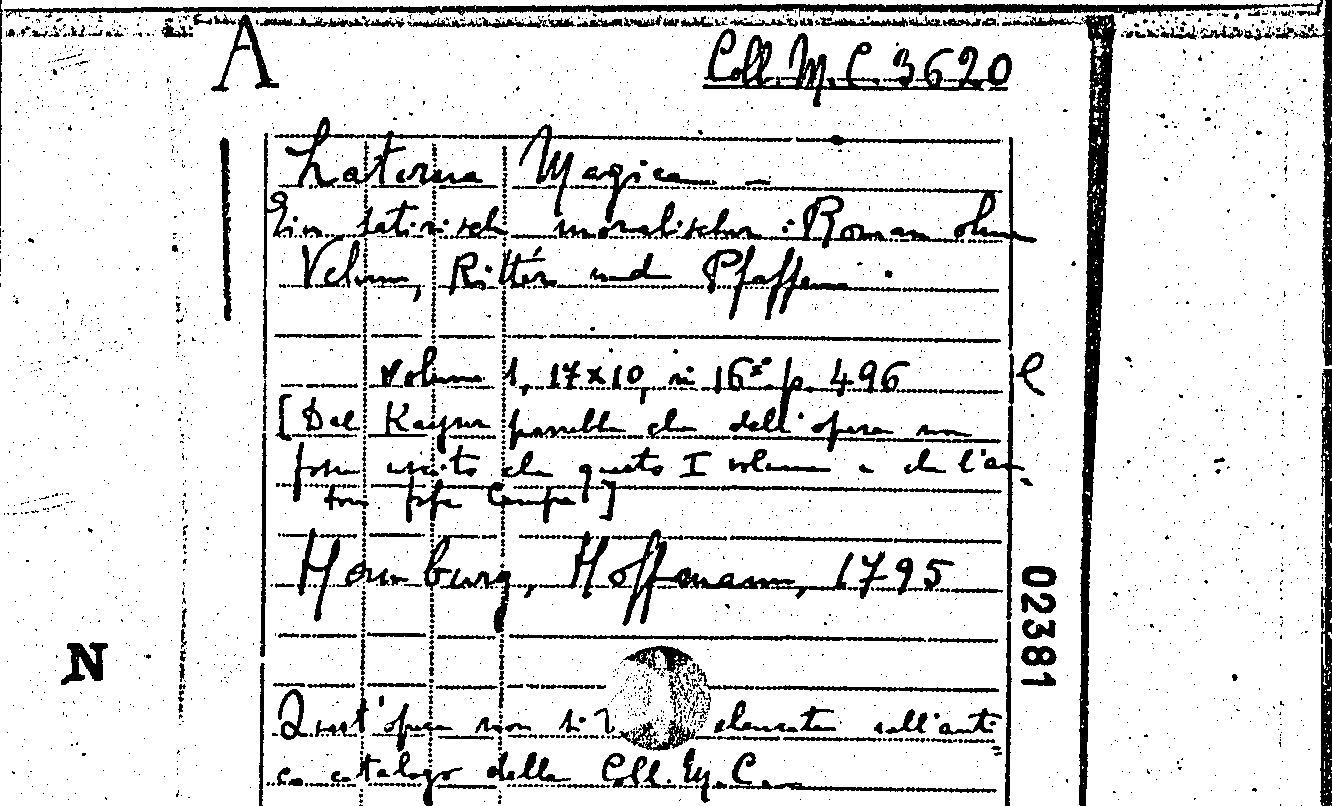 A
Coll. M. C. 3620
Laterna Magica —
Ein satirisch moralischer Roman ohne
Vehme, Ritter und Pfaffen.
Volume 1, 17x10, in 16° p. 496
[Dal Kayser parrebbe che dell'opera non
fosse uscito che questo I volume e che l'au-
tore fosse]
Hamburg, Hoffmann, 1795
02381
N
Quest'opera non si elencata sull'anti-
co catalogo della Coll. M. C.